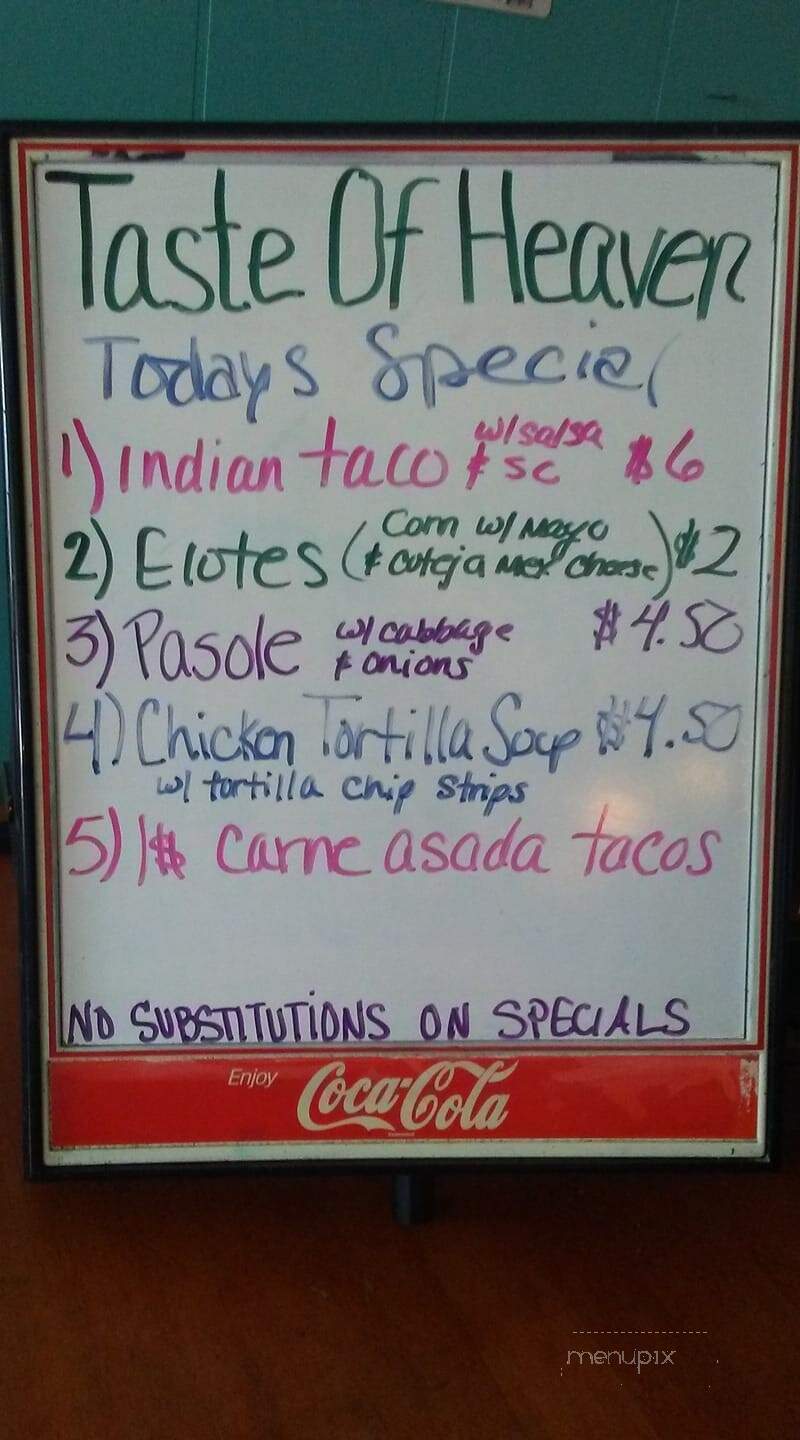 Taste Of Heaven
Todays Special
1) Indian taco w/salsa & sc $6
2) Elotes (Corn w/ Mayo & coteja Mex. cheese) $2
3) Pasole w/ cabbage & onions $4.50
4) Chicken Tortilla Soup $4.50
w/ tortilla chip strips
5) 1$ carne asada tacos
NO SUBSTITUTIONS ON SPECIALS
Enjoy
Coca-Cola
menupix